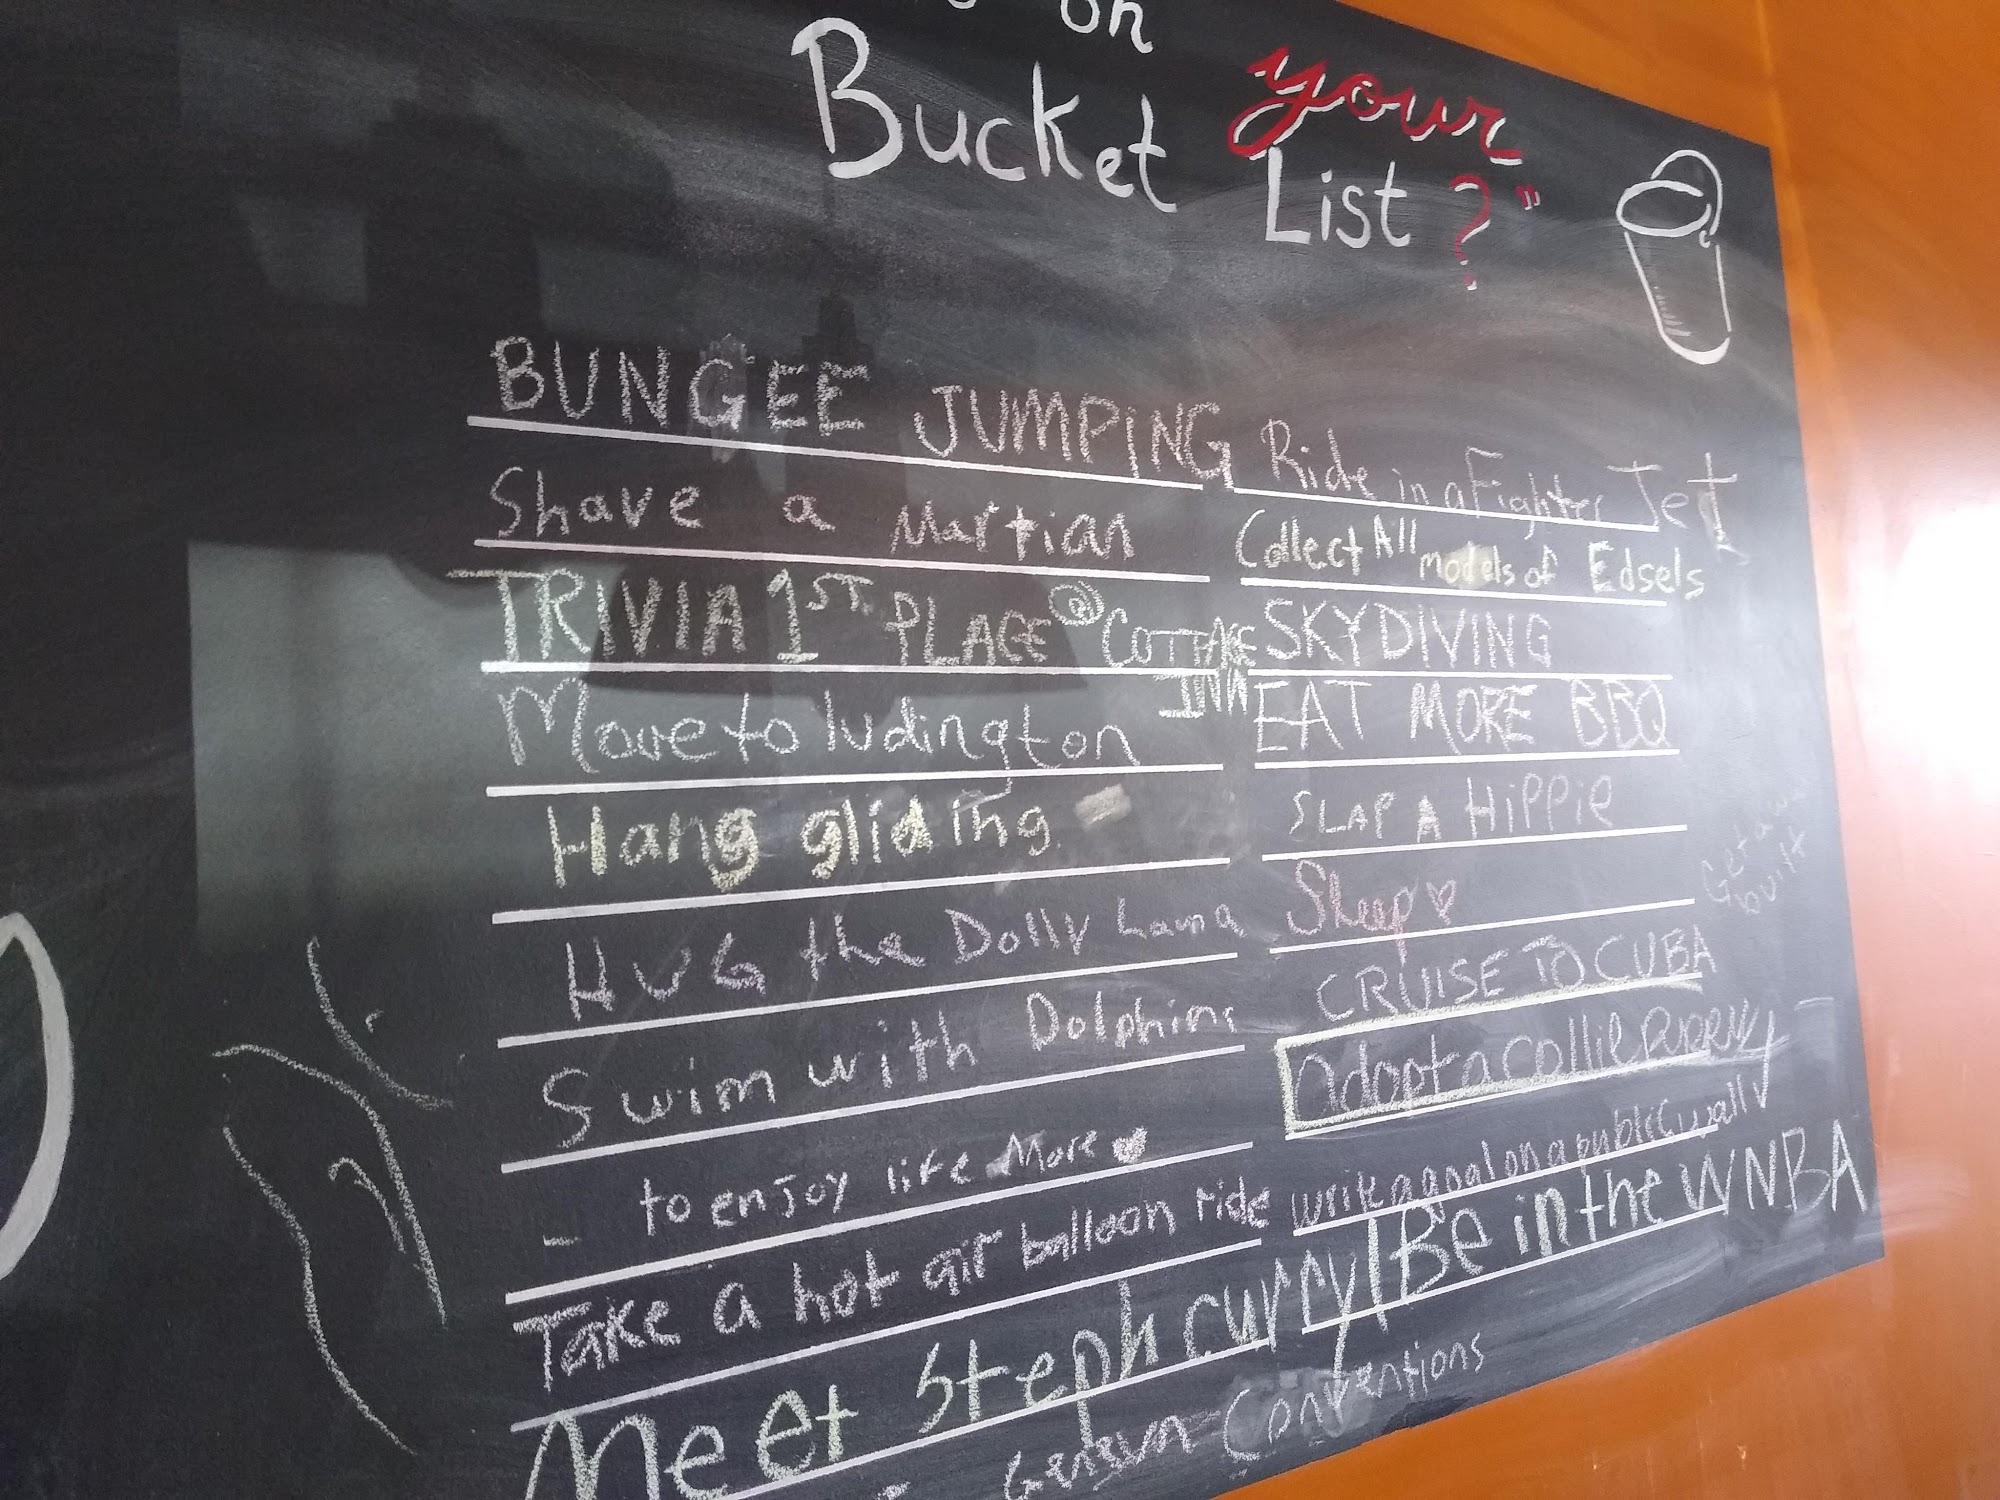 on
your
Bucket List?"
BUNGEE JUMPING
Shave a Martian
TRIVIA 1ST PLACE @ COTTAGE INN
Move to ludington
Hang gliding
HUG the Dolly Lama
Swim with Dolphins
to enjoy life More
Take a hot air balloon ride
Meet Steph curry / Be in the WNBA
Ride in a Fighter Jet
Collect All models of Edsels
SKYDIVING
EAT MORE BBQ
SLAP A HiPPiE
Sleep
CRUISE TO CUBA
adopt a collie puppy
write a goal on a public wall
Conventions
Get a
built